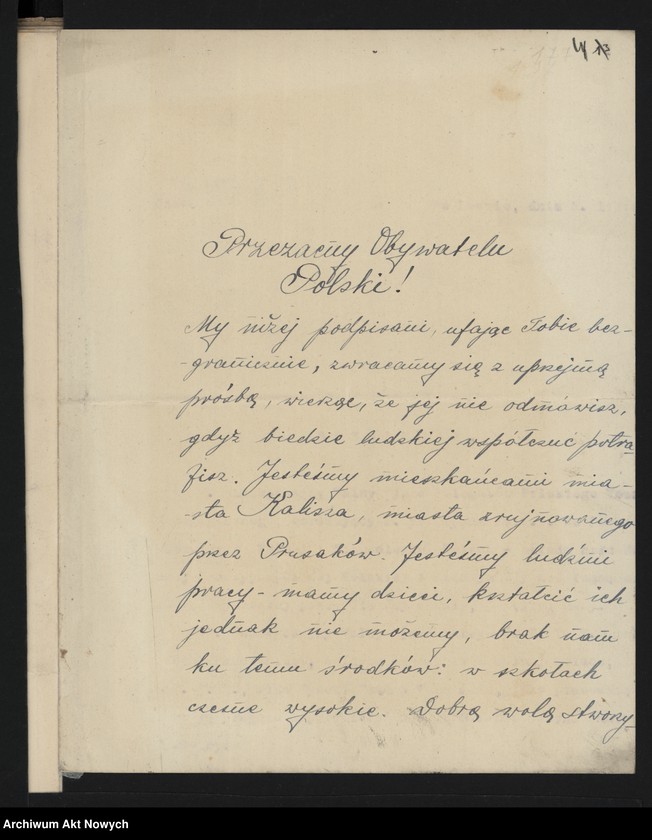 Przezacny Obywatelu
Polski!
My niżej podpisani, ufając Tobie bez-
-granicznie, zwracamy się z uprzejmą
prośbą, wierząc, że jej nie odmówisz,
gdyż biedzie ludzkiej współczuć potra-
fisz. Jesteśmy mieszkańcami mia-
-sta Kalisza, miasta zrujnowanego
przez Prusaków. Jesteśmy ludźmi
pracy - mamy dzieci, kształcić ich
jednak nie możemy, brak nam
ku temu środków: w szkołach
czesne wysokie. Dobrą wolą stworzy-
Archiwum Akt Nowych